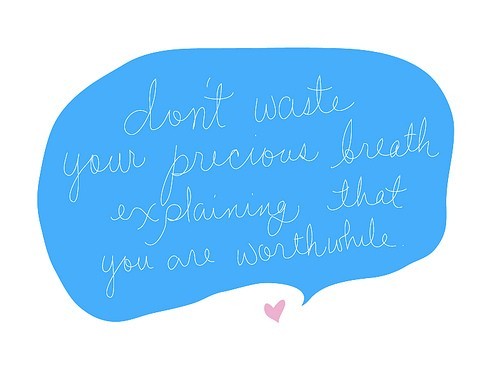 don't waste
your precious breath
explaining that
you are worthwhile.